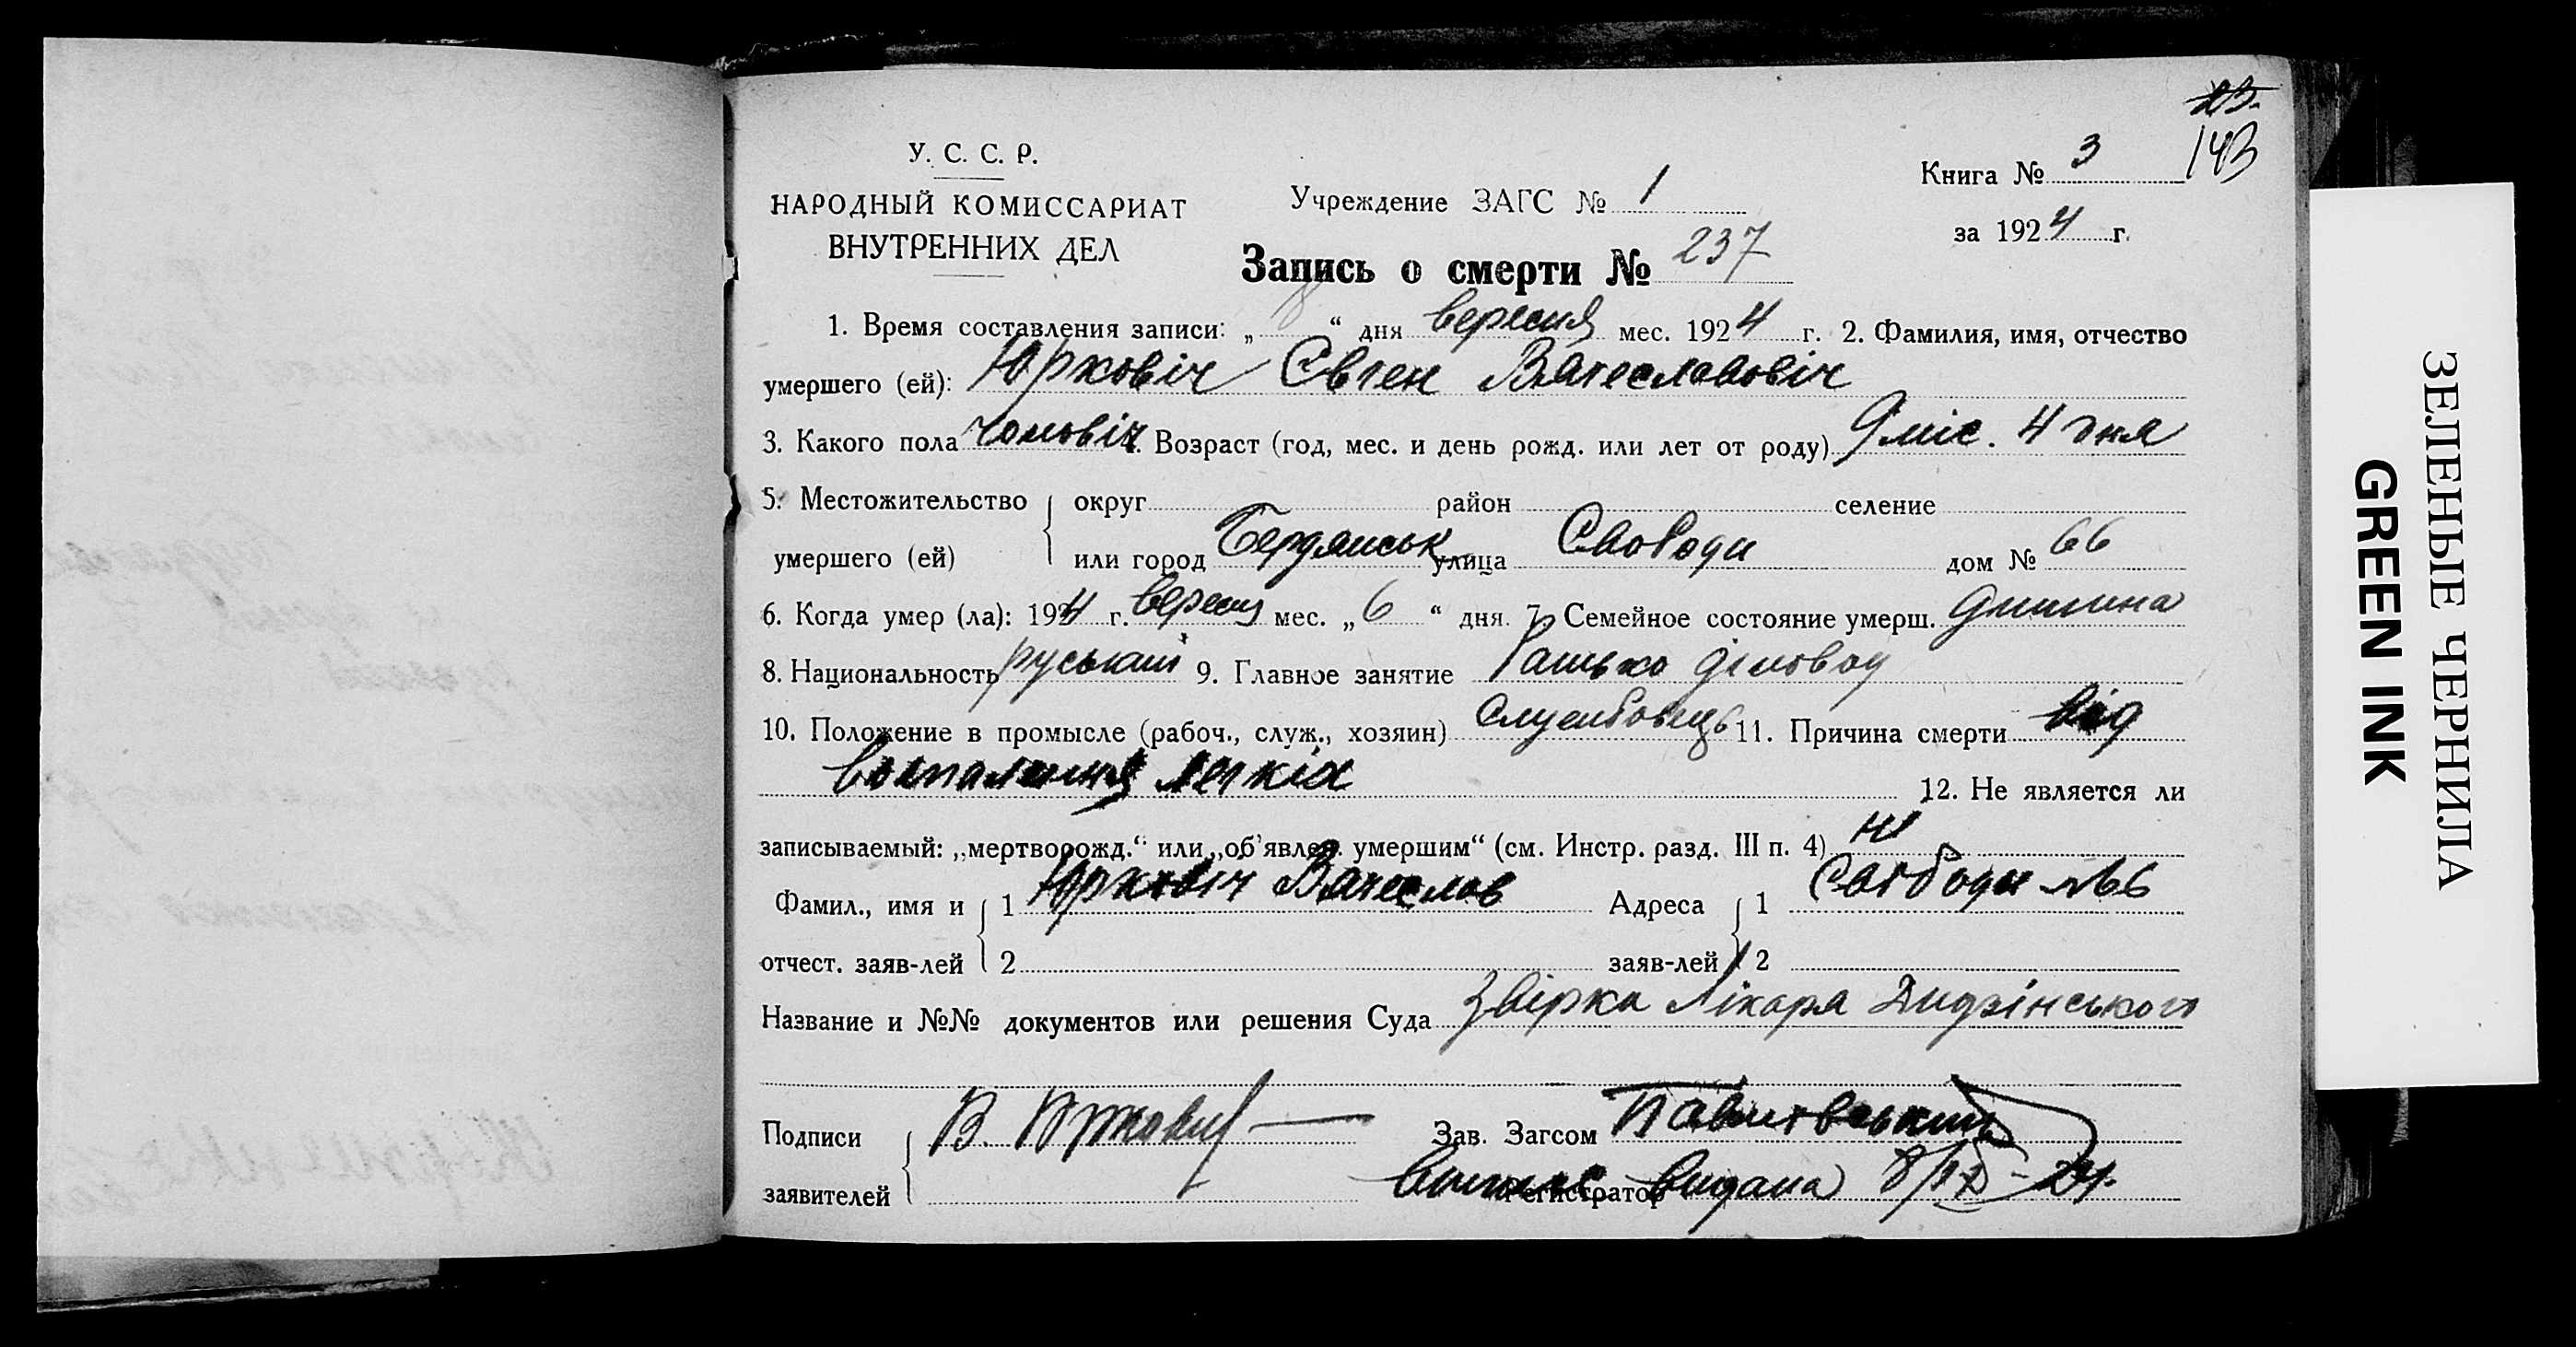 23.
143
У. С. С. Р.
НАРОДНЫЙ КОМИССАРИАТ
ВНУТРЕННИХ ДЕЛ
Учреждение ЗАГС № 1
Книга № 3
за 1924 г.
Запись о смерти № 237
1. Время составления записи: „ 8 “ дня вересня мес. 1924 г. 2. Фамилия, имя, отчество
умершего (ей): Юрковіч Євген Вячеславовіч
3. Какого пола чоловіч. Возраст (год, мес. и день рожд. или лет от роду) 9 міс. 4 дня
5. Местожительство округ район селение
умершего (ей) или город Бердянськ улица Свободи дом № 66
6. Когда умер (ла): 1924 г. вересня мес. „ 6 “ дня. 7. Семейное состояние умерш. дитина
8. Национальность руський 9. Главное занятие Батько діловод
10. Положение в промысле (рабоч., служ., хозяин) Службовець 11. Причина смерти від
воспалення легкіх 12. Не является ли
записываемый: „мертворожд.“ или „об’явлен. умершим“ (см. Инстр. разд. III п. 4) ні
Фамил., имя и 1 Юрковіч Вячеслав Адреса 1 Свободи №66
отчест. заяв-лей 2 заяв-лей 2
Название и №№ документов или решения Суда Звірка Лікаря Дидзінського
Подписи В. Юркович Зав. Загсом
заявителей Регистратор видана 8/IX-24.
ЗЕЛЕНЫЕ ЧЕРНИЛА
GREEN INK